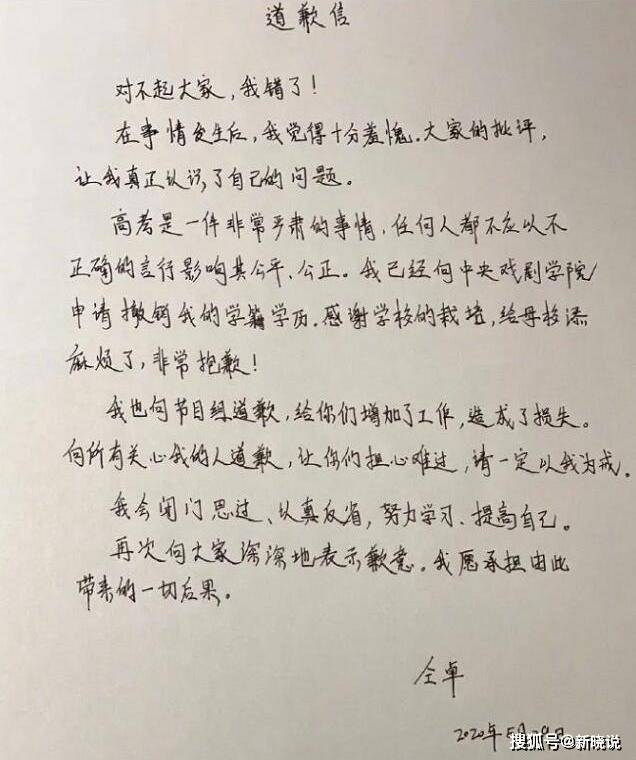 道歉信
对不起大家，我错了！
在事情发生后，我觉得十分羞愧。大家的批评，
让我真正认识了自己的问题。
高考是一件非常严肃的事情，任何人都不应以不
正确的言行影响其公平、公正。我已经向中央戏剧学院
申请撤销我的学籍学历。感谢学校的栽培，给母校添
麻烦了，非常抱歉！
我也向节目组道歉，给你们增加了工作，造成了损失。
向所有关心我的人道歉，让你们担心难过，请一定以我为戒。
我会闭门思过、认真反省，努力学习、提高自己。
再次向大家深深地表示歉意。我愿承担由此
带来的一切后果。
仝卓
2020年5月
搜狐号@新晓说